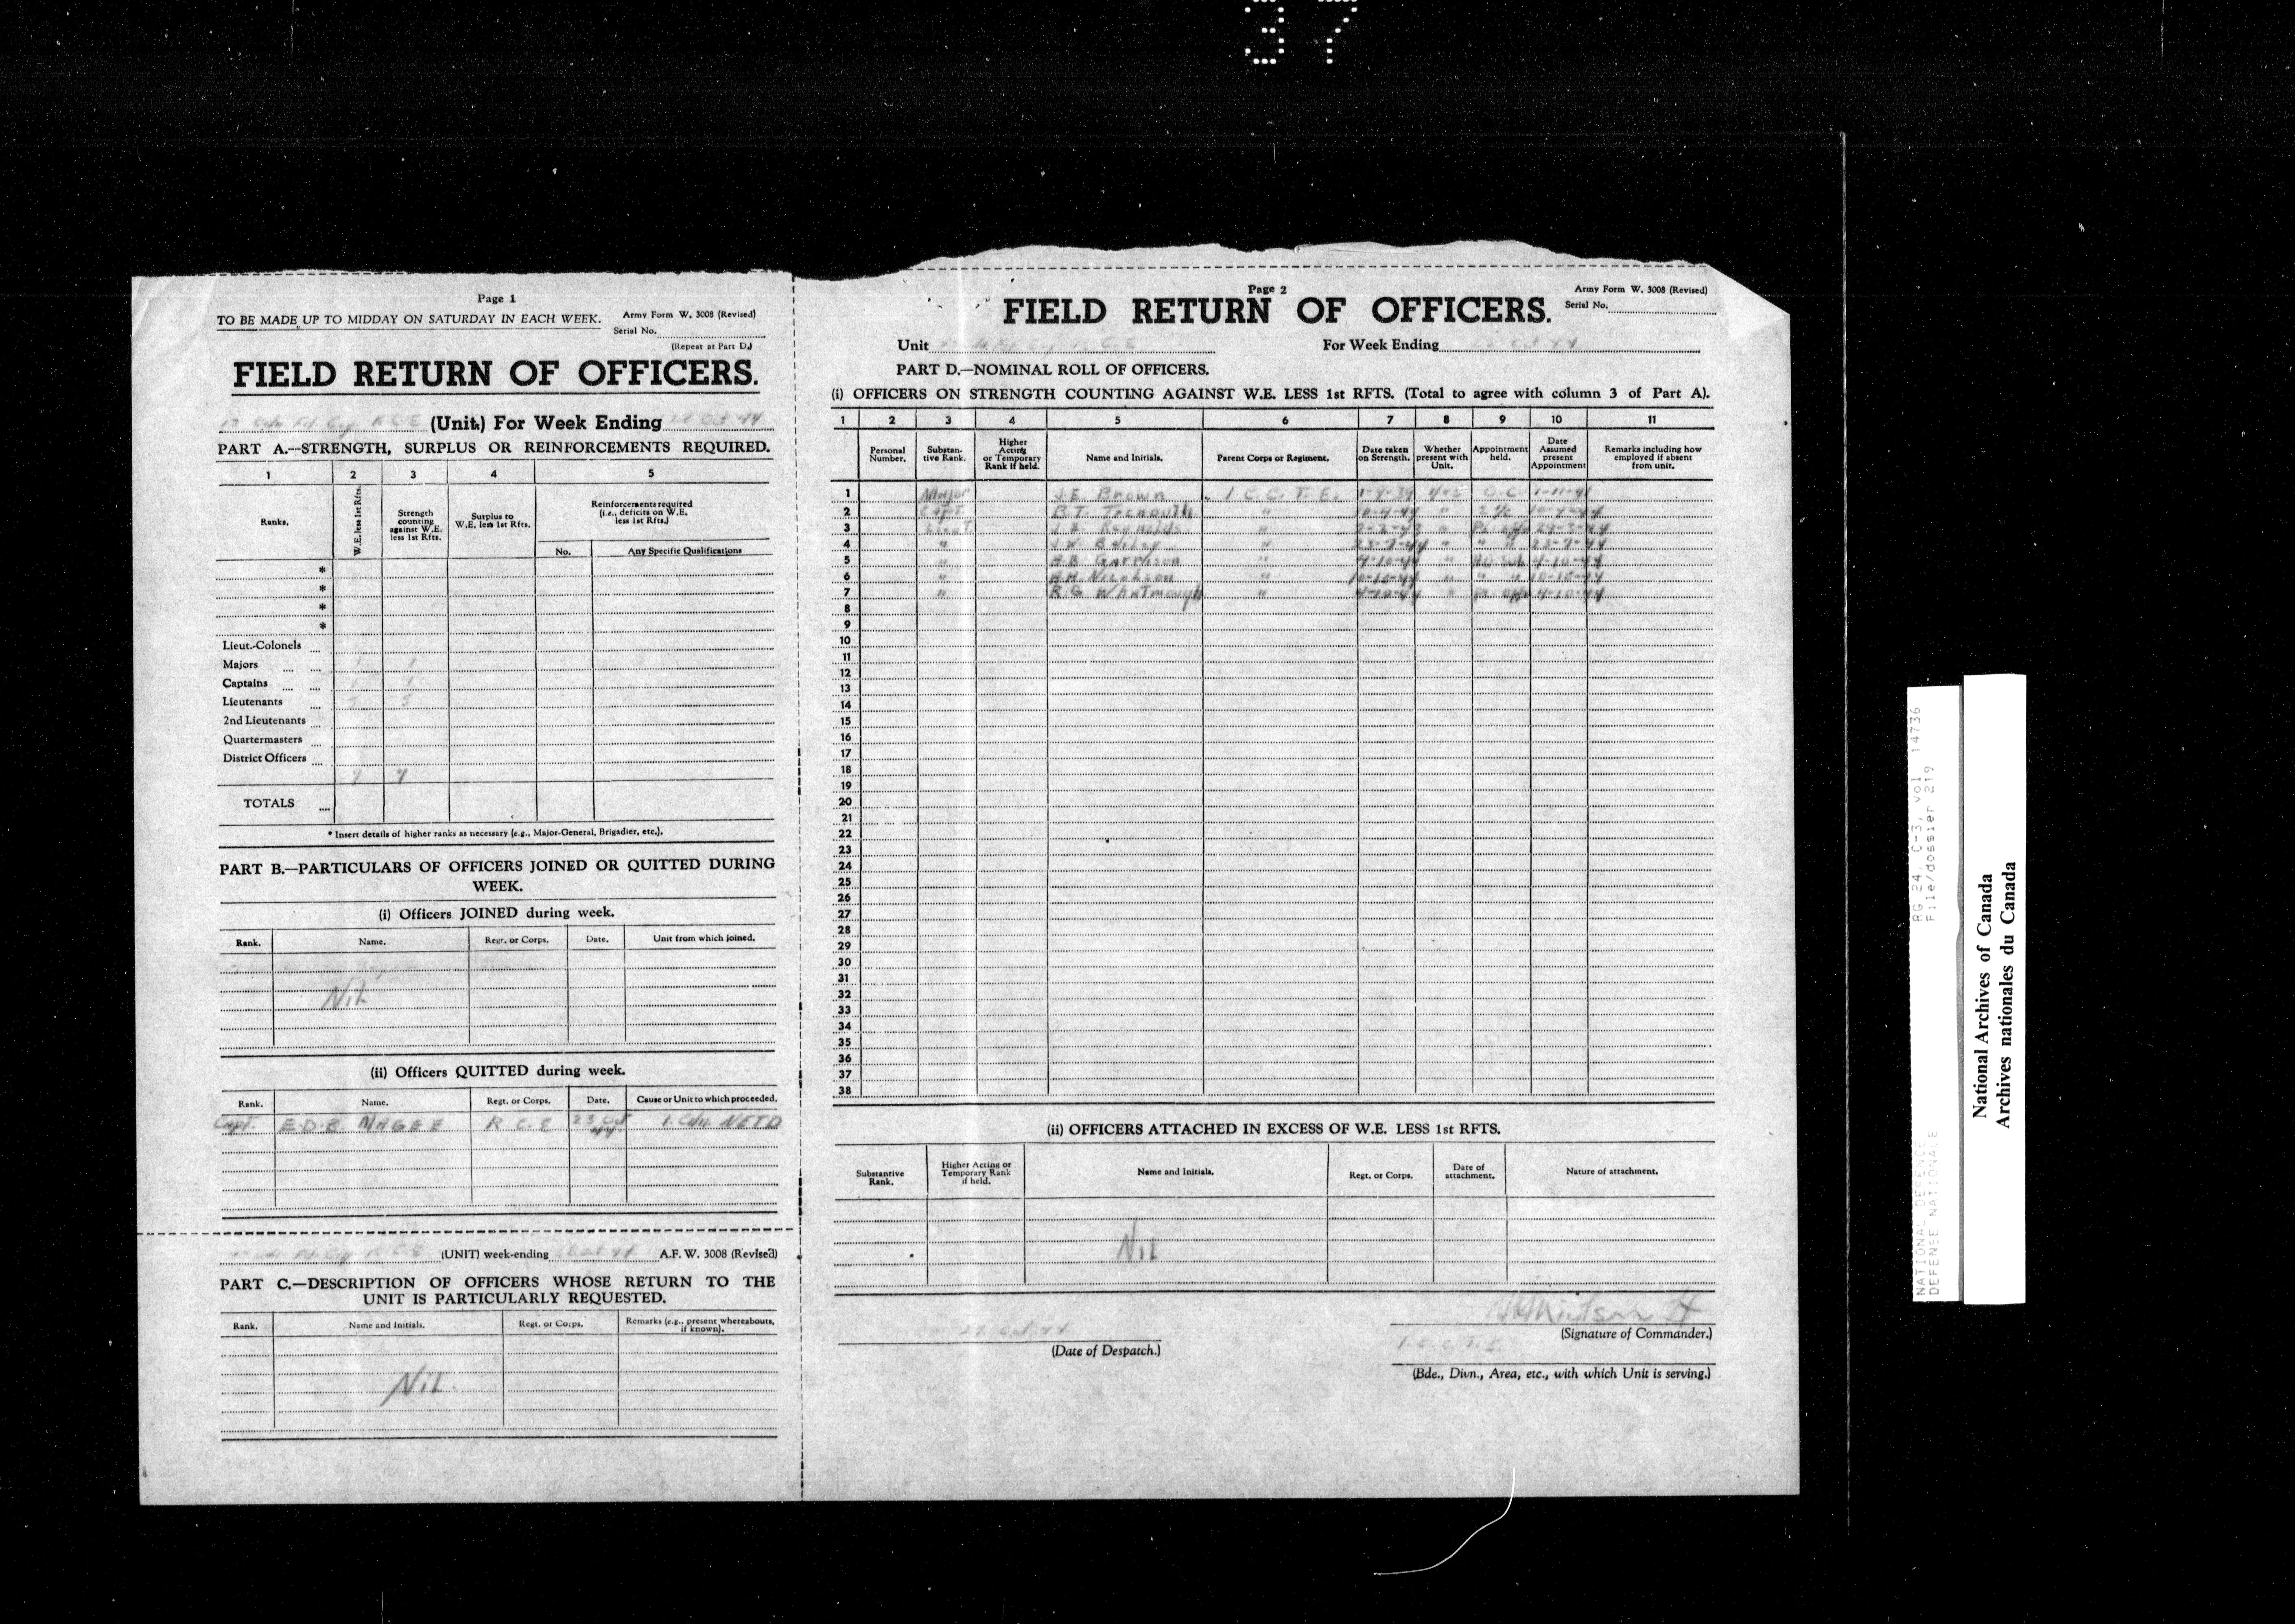 37
Page 1
TO BE MADE UP TO MIDDAY ON SATURDAY IN EACH WEEK.
Army Form W. 3008 (Revised)
Serial No.
(Repeat at Part D.)
FIELD RETURN OF OFFICERS.
Cdn Fd Coy RCE (Unit) For Week Ending Oct 44
PART A.—STRENGTH, SURPLUS OR REINFORCEMENTS REQUIRED.
1 2 3 4 5
Ranks.
W.E. less 1st Rfts.
Strength counting against W.E. less 1st Rfts.
Surplus to W.E. less 1st Rfts.
Reinforcements required (i.e., deficits on W.E. less 1st Rfts.)
No. Any Specific Qualifications
*
*
*
*
Lieut.-Colonels
Majors 1 1
Captains 1 1
Lieutenants 5 5
2nd Lieutenants
Quartermasters
District Officers
7 7
TOTALS
* Insert details of higher ranks as necessary (e.g., Major-General, Brigadier, etc.).
PART B.—PARTICULARS OF OFFICERS JOINED OR QUITTED DURING
WEEK.
(i) Officers JOINED during week.
Rank. Name. Regt. or Corps. Date. Unit from which joined.
Nil
(ii) Officers QUITTED during week.
Rank. Name. Regt. or Corps. Date. Cause or Unit to which proceeded.
Capt. E.D.B. MAGEE R C E 23 Oct 44 1 Cdn NETD
Cdn Fd Coy RCE (UNIT) week-ending Oct 44 A.F. W. 3008 (Revised)
PART C.—DESCRIPTION OF OFFICERS WHOSE RETURN TO THE
UNIT IS PARTICULARLY REQUESTED.
Rank. Name and Initials. Regt. or Corps. Remarks (e.g., present whereabouts, if known).
Nil.
Page 2
Army Form W. 3008 (Revised)
Serial No.
FIELD RETURN OF OFFICERS.
Unit For Week Ending Oct 44
PART D.—NOMINAL ROLL OF OFFICERS.
(i) OFFICERS ON STRENGTH COUNTING AGAINST W.E. LESS 1st RFTS. (Total to agree with column 3 of Part A).
1 2 3 4 5 6 7 8 9 10 11
Personal Number.
Substantive Rank.
Higher Acting or Temporary Rank if held.
Name and Initials.
Parent Corps or Regiment.
Date taken on Strength.
Whether present with Unit.
Appointment held.
Date Assumed present Appointment
Remarks including how employed if absent from unit.
1 Major J.E. Brown 1 C.C.T.E. yes O.C. 1-11-41
2 Capt B.T. " "
3 Lieut Reynolds " " 24-3-44
4 " J.W. Bailey " 23-7-44 " " " 23-7-44
5 " Garrison " 4-10-44 " 4-10-44
6 " Nicholson " 10-10-44 " " " 10-10-44
7 " R.G. Whatmough " 4-10-44 " 4-10-44
8
9
10
11
12
13
14
15
16
17
18
19
20
21
22
23
24
25
26
27
28
29
30
31
32
33
34
35
36
37
38
(ii) OFFICERS ATTACHED IN EXCESS OF W.E. LESS 1st RFTS.
Substantive Rank.
Higher Acting or Temporary Rank if held.
Name and Initials.
Regt. or Corps.
Date of attachment.
Nature of attachment.
Nil
Oct 44
(Date of Despatch.)
(Signature of Commander.)
(Bde., Divn., Area, etc., with which Unit is serving.)
NATIONAL DEFENCE RG 24, C-3, vol 14736
DEFENSE NATIONALE File/dossier 219
National Archives of Canada
Archives nationales du Canada